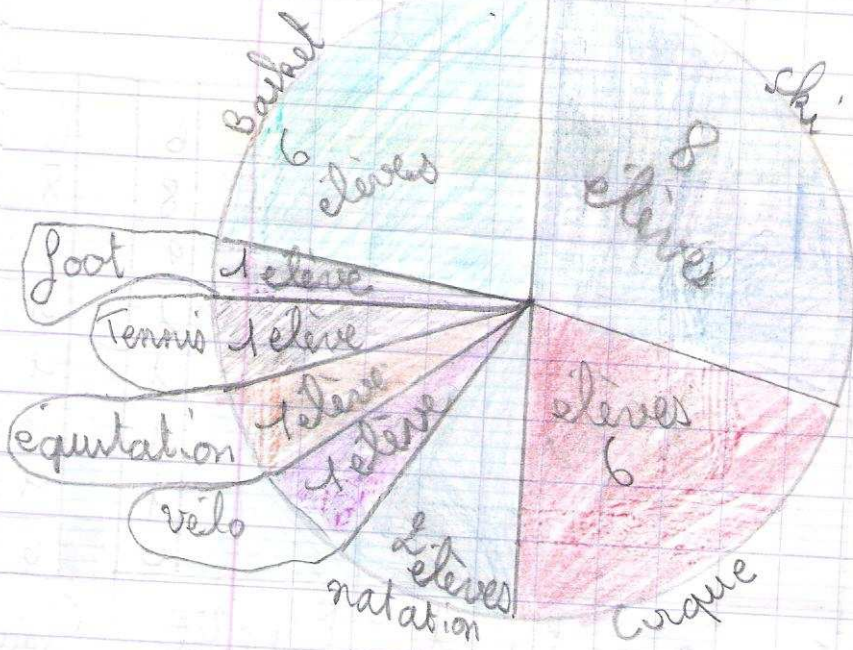 Basket
6
élèves
ski
8
élèves
foot
1 élève
Tennis
1 élève
équitation
1 élève
vélo
1 élève
2
élèves
natation
élèves
6
Cirque